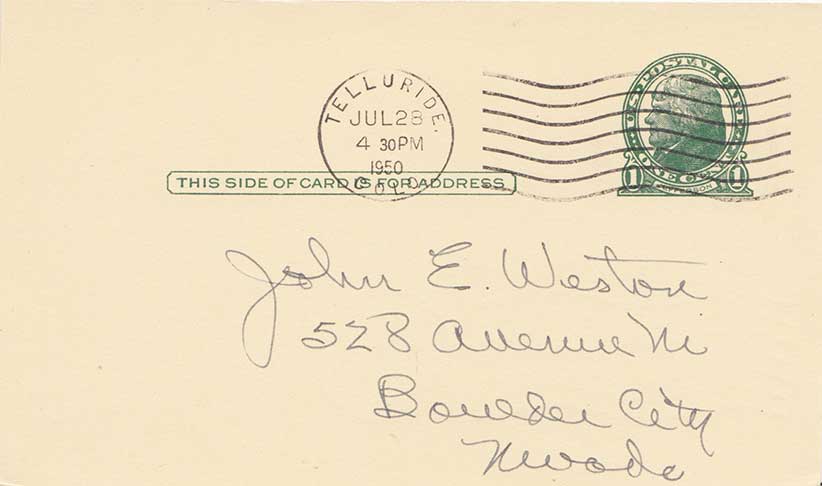 U.S. POSTAL CARD
TELLURIDE,
JUL 28
4 30PM
1950
COLO.
1 ONE CENT 1
JEFFERSON
THIS SIDE OF CARD IS FOR ADDRESS
John E. Weston
528 Avenue M
Boulder City
Nevada